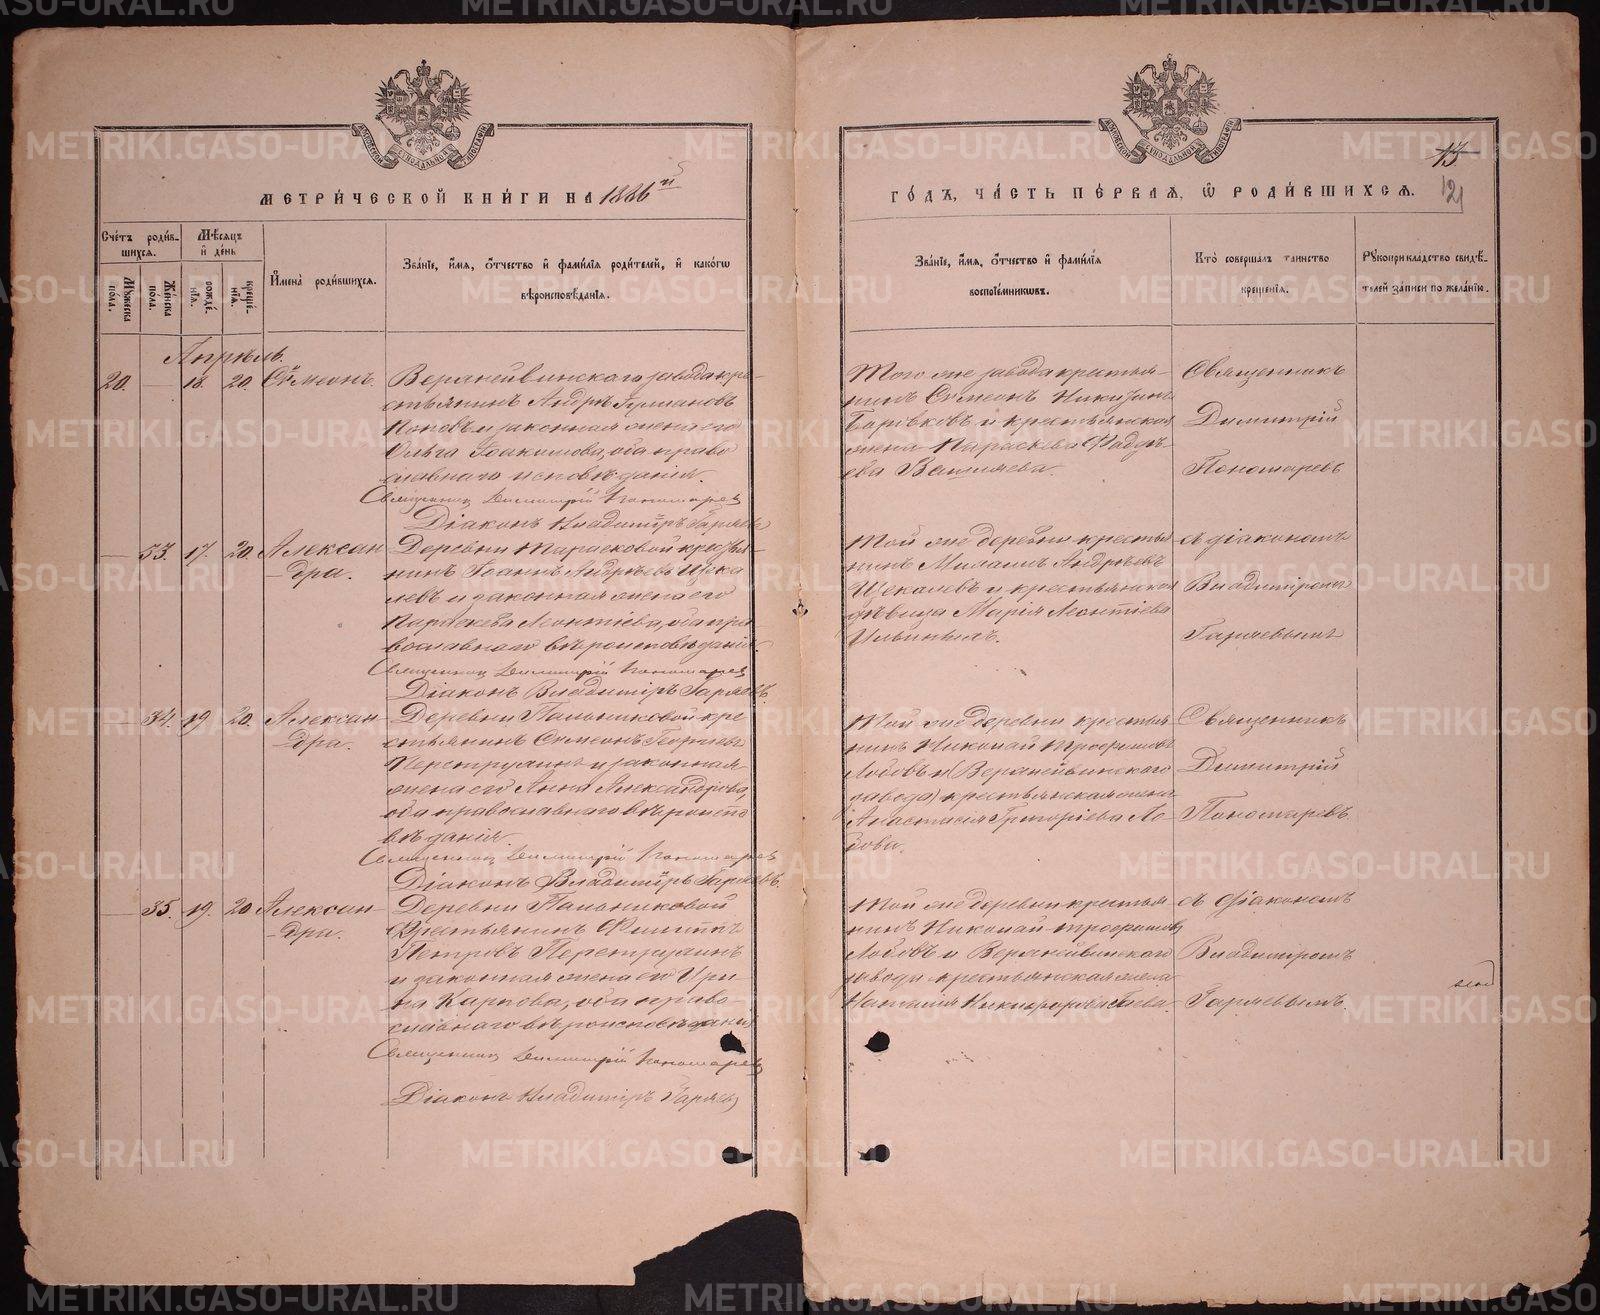 МЕТРИ́ЧЕСКОЙ КНИ́ГИ НА 1886й
ГО́ДЪ, ЧА́СТЬ ПЕ́РВАѦ, Ѡ҆ РОДИ́ВШИХСѦ.
13
12
Сче́тъ роди́в-
шихсѧ.
Мꙋ́жеска по́ла.
Же́нска по́ла.
Мѣ́сѧцъ
и҆ де́нь
рожде́-
нїѧ.
креще́-
нїѧ.
И҆мена̀ роди́вшихсѧ.
Зва́нїе, и҆́мѧ, ѻ҆́тчество и҆ фами́лїѧ роди́телей, и҆ како́гѡ
вѣроисповѣ́данїѧ.
Зва́нїе, и҆́мѧ, ѻ҆́тчество и҆ фами́лїѧ
воспрїе́мникѡвъ.
Кто̀ соверша́лъ та́инство
креще́нїѧ.
Рꙋкоприкла́дство свидѣ́-
телей за́писи по жела́нїю.
Апрѣль.
20. — 18. 20. Сѵмеонъ.
Верхнейвинскаго завода кре-
стьянинъ Андрей
Поповъ и законная жена его
Ольга Іоакимова, оба право
славнаго исповѣданія.
Священник Димитрій Пономарев
Діаконъ Владимиръ Гаряев
Того же завода крестья-
нинъ Сѵмеонъ
Боровковъ и крестьянская
жена Параскева Фадде-
ева
Священникъ
Димитрій
Пономаревъ
— 33. 17. 20. Александра.
Деревни Тарасковой крестья-
нинъ Іоаннъ Андреевъ Щека
левъ и законная жена его
Параскева Леонтіева, оба пра
вославнаго вѣроисповѣданія.
Священник Димитрій Пономарев
Діаконъ Владимиръ Гаряевъ
Той же деревни крестья
нинъ Михаилъ Андреевъ
Щекалевъ и крестьянская
дѣвица Марія Леонтіева
Ильиныхъ.
съ діакономъ
Владимиромъ
Гаряевымъ
— 34. 19 20. Александра.
Деревни Пальниковой кре
стьянинъ Сѵмеонъ
Перетрухинъ и законная
жена его Анна Александрова,
оба православнаго вѣроиспо
вѣданія.
Священник Димитрій Пономарев
Діаконъ Владимиръ Гаряевъ.
Той же деревни крестья
нинъ Николай Трофимовъ
Лобовъ и (Верхнейвинского
завода) крестьянская жена
Анастасія Григоріева Ло-
бова.
Священникъ
Димитрій
Пономаревъ
— 35. 19. 20 Александра.
Деревни Пальниковой
Крестьянинъ Филиппъ
Петровъ Перетрухинъ
и законная жена его Ири
на Карпова, оба право-
славнаго вѣроисповѣданія
Священник Димитрій Пономарев
Діаконъ Владимиръ Гаряев
Той же деревни крестья
нинъ Николай Трофимовъ
Лобовъ и Верхнейвинского
завода крестьянская жена
Наталия Никифорова
съ діакономъ
Владимиромъ
Гаряевымъ.
МОСКОВСКОЙ СѴНОДАЛЬНОЙ ТИПОГРАФІИ
МОСКОВСКОЙ СѴНОДАЛЬНОЙ ТИПОГРАФІИ
METRIKI.GASO-URAL.RU